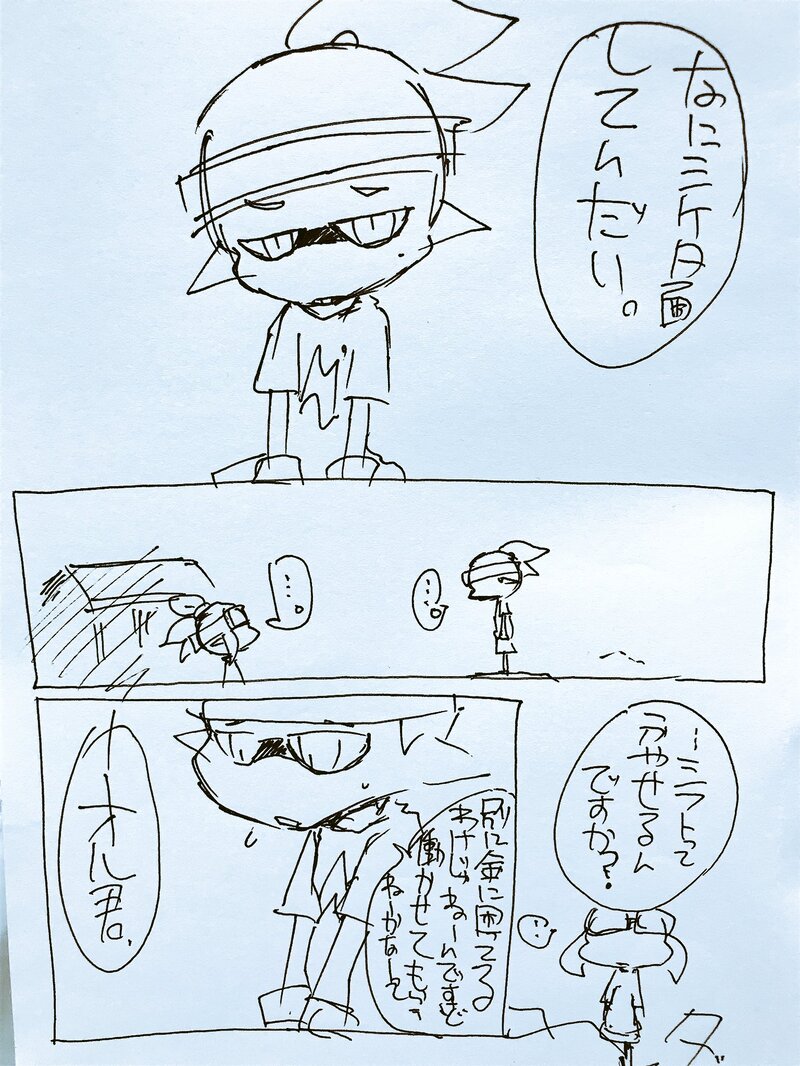 なにシケタ面
してんだい。
…。
…。
…シフトって
ふやせるん
ですか?
…
別に金に困ってる
わけじゃねーんですけど
働かせてもらえ
ねーかなーって
トオル君。